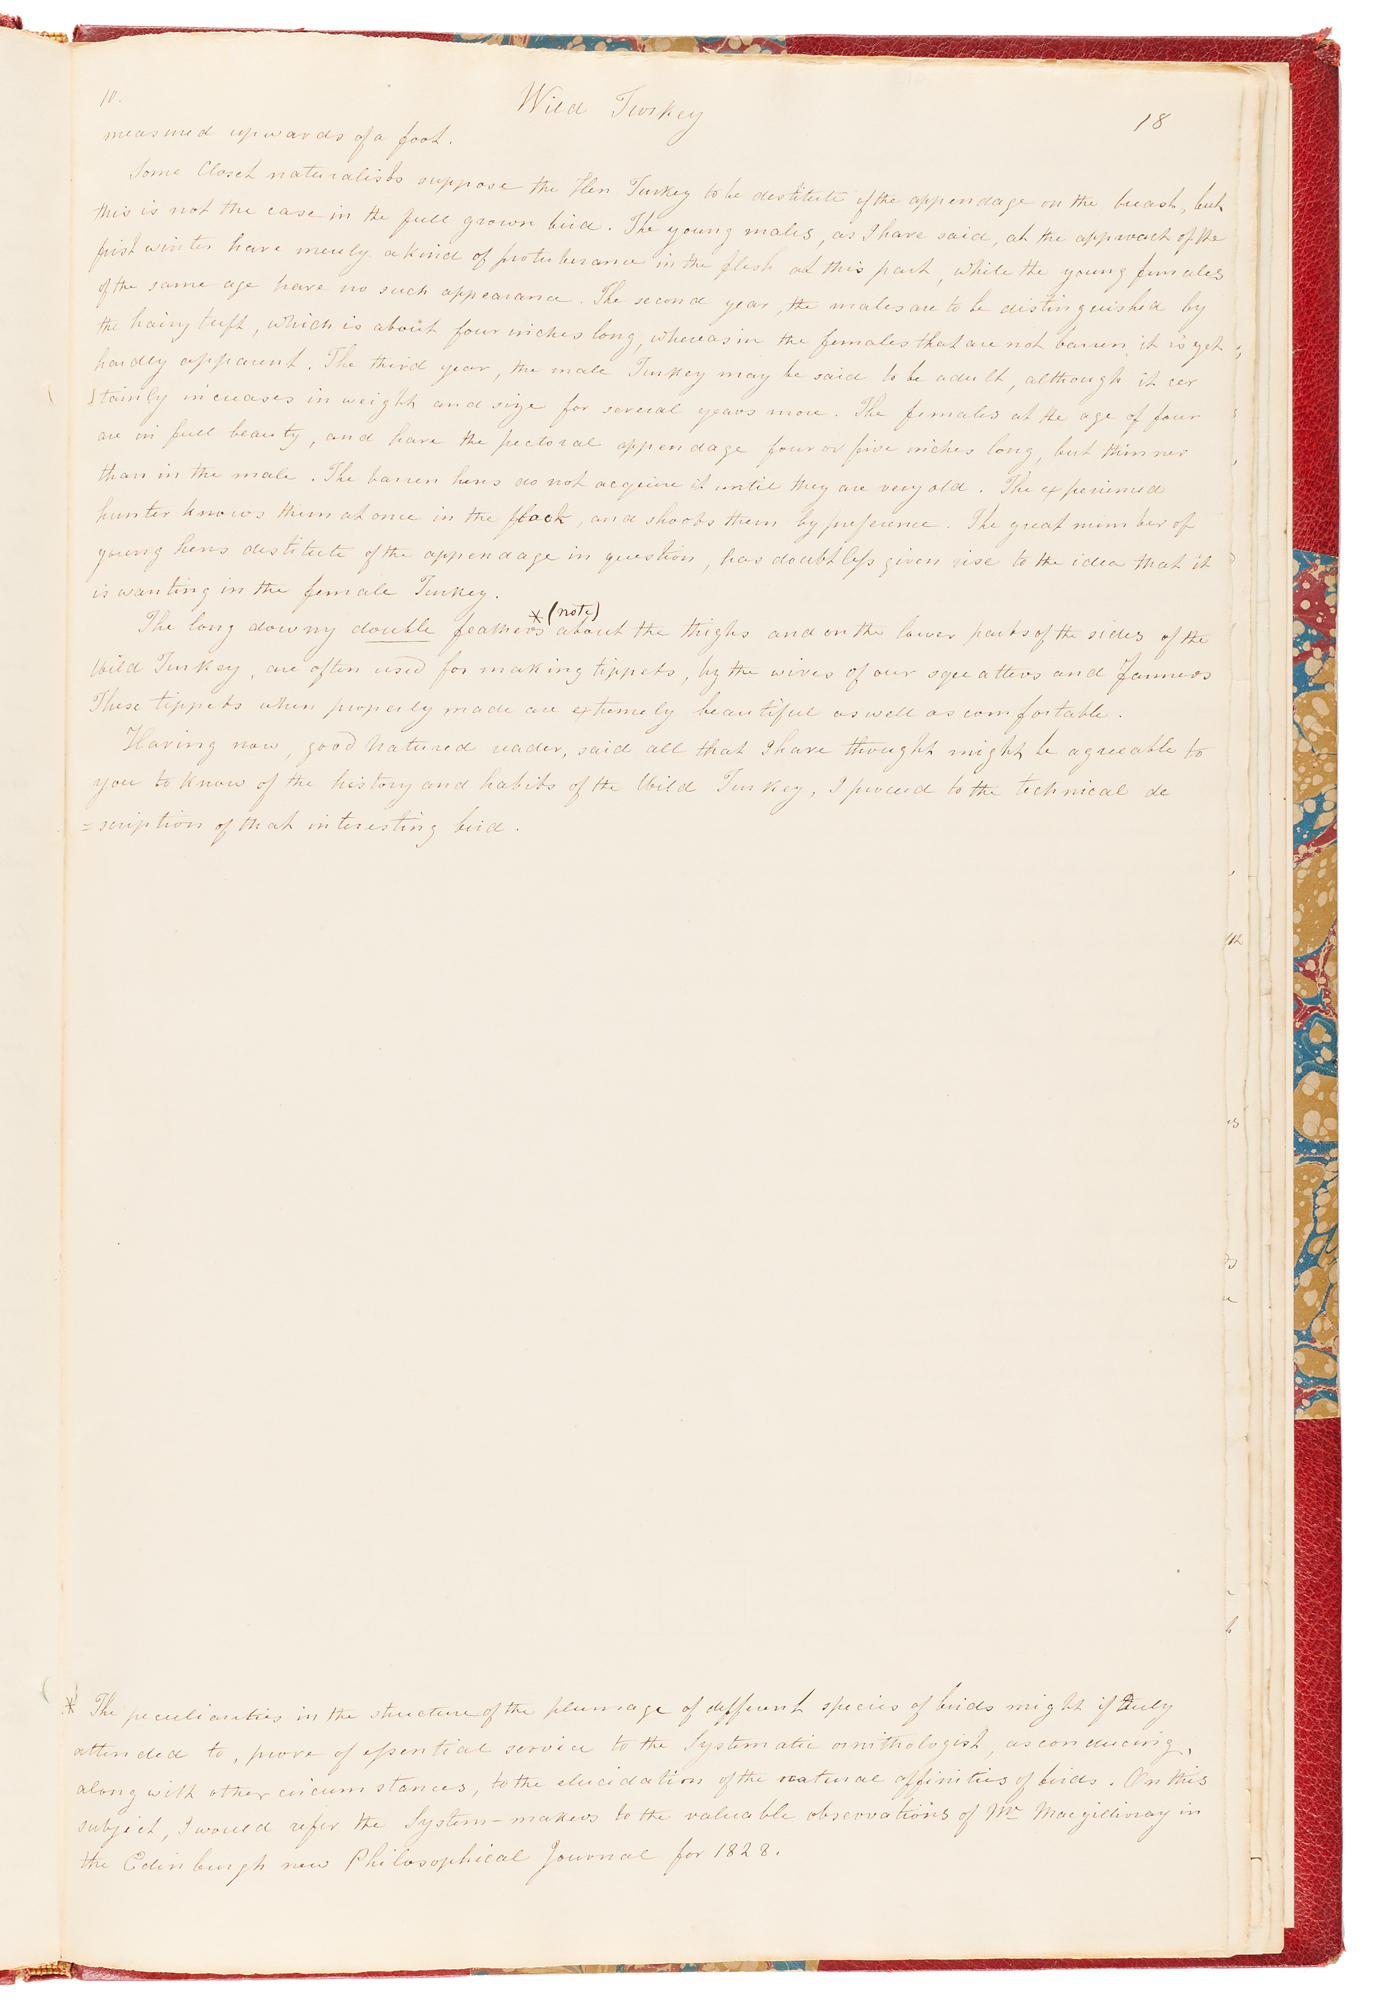 10.
Wild Turkey
18
measured upwards of a foot.
Some Closet naturalists suppose the Hen Turkey to be destitute of the appendage on the breast, but
this is not the case in the full grown bird. The young males, as I have said, at the approach of the
first winter have merely a kind of protuberance in the flesh at this part, while the young females
of the same age have no such appearance. The second year, the males are to be distinguished by
the hairy tuft, which is about four inches long, whereas in the females that are not barren, it is yet
hardly apparent. The third year, the male Turkey may be said to be adult, although it cer
tainly increases in weight and size for several years more. The females at the age of four
are in full beauty, and have the pectoral appendage four or five inches long, but thinner
than in the male. The barren hens do not acquire it until they are very old. The experienced
hunter knows them at once in the flock, and shoots them by preference. The great number of
young hens destitute of the appendage in question, has doubtless given rise to the idea that it
is wanting in the female Turkey.
The long downy double feathers * (note) about the thighs and on the lower parts of the sides of the
Wild Turkey, are often used for making tippets, by the wives of our squatters and farmers
These tippets when properly made are extremely beautiful as well as comfortable.
Having now, good natured reader, said all that I have thought might be agreeable to
you to know of the history and habits of the Wild Turkey, I proceed to the technical de
=scription of that interesting bird.
* The peculiarities in the structure of the plumage of different species of birds might if duly
attended to, prove of essential service to the Systematic ornithologist, as conducing,
along with other circumstances, to the elucidation of the natural affinities of birds. On this
subject, I would refer the System-makers to the valuable observations of Mr Macgillivray in
the Edinburgh new Philosophical Journal for 1828.